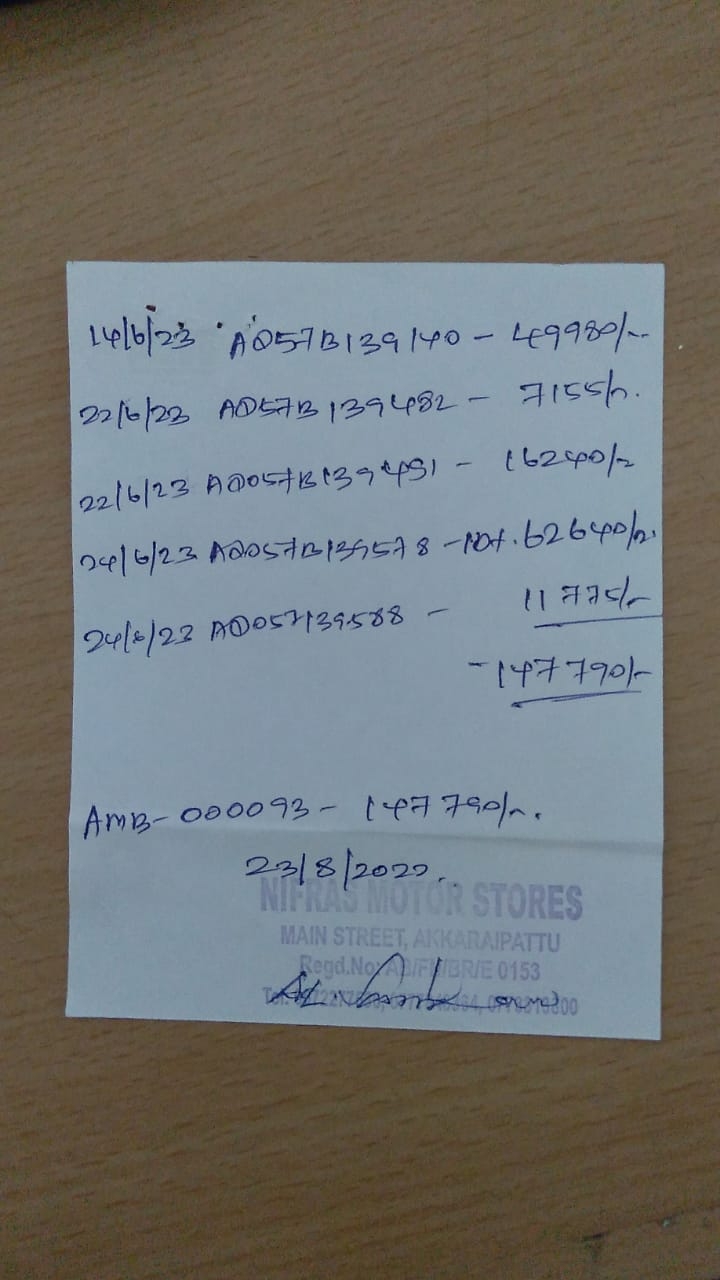 14/6/23 AO57B139140 - 49980/-
22/6/23 AO57B139482 - 7155/-.
22/6/23 AOO57B139491 - 16240/-
24/6/23 AOO57B139578 - 62640/-.
24/6/23 AOO57139588 - 11775/-
- 147790/-
AMB-000093 - 147790/-.
23/8/2022..
NIFRAS MOTOR STORES
MAIN STREET, AKKARAIPATTU
Regd.No: /BR/E 0153